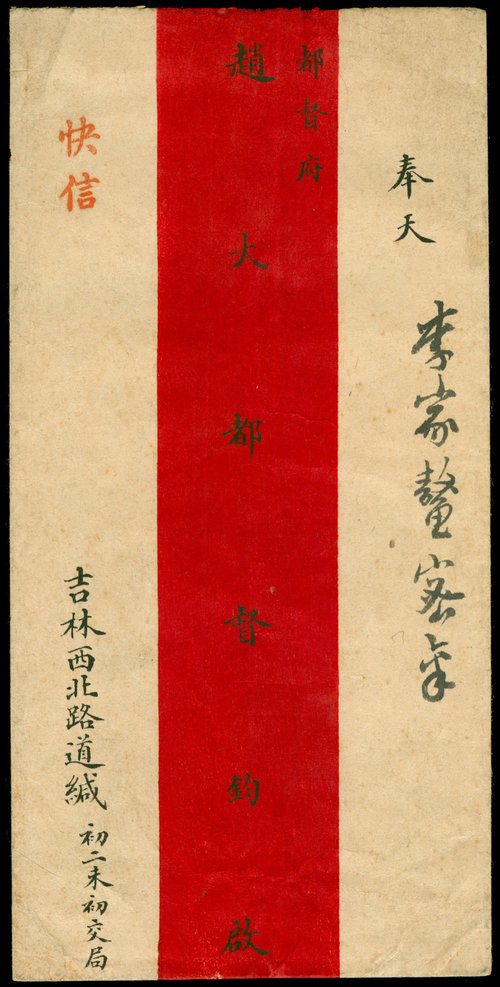 奉天
李家鏊密章
都督府
趙大都督鈞啟
快信
吉林西北路道緘
初二未初交局